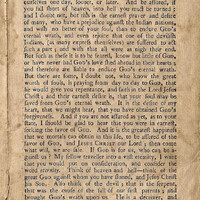 ourselves one day, sooner, or later. And be assured, if
you fall short of heav'n, into hell you must be turned;
and I doubt not, but this is the earnest prayer and desire
of many, who have a prejudice against the Indian nations,
and wish no better to your soul, than to endure God's
eternal wrath, and even rejoice that one of the devilish
Indians, (as many express themselves) are suffered to act
such a part; and wish that all were at their end.
But such as these it is to be feared, know not God,
or have never had God's love shed abroad in their hearts;
and therefore are liable to endure God's eternal wrath.
But there are some, I doubt not, who know the great
worth of souls, is praying from day to day to God, that
he would give you repentance, and faith in the Lord Jesus
Christ; and their earnest desire is, that your soul may be
saved from God's eternal wrath. It is the desire of my
heart, that we might hear, that you have obtained God's
forgiveness. And if you are not assured as yet, as to your
state, I should be glad to hear that you were in earnest,
seeking the favor of God. And it is the greatest happiness
that we mortals can obtain in this life, to be assured of the favor
of God, and Jesus Christ our Lord; then come
what will, we are safe. If God is for us, who can be a-
gainst us? My fellow traveller into a vast eternity, I wish
that you would put on consideration, and consider the
world eternity. Think of heaven and hell—think of the
great God against whom you have sinned, and Jesus Christ
his Son. And think of the devil; that is the serpent,
that was the cause of the fall of our first parents; and
brought God's wrath upon us. He is a deceiver, and